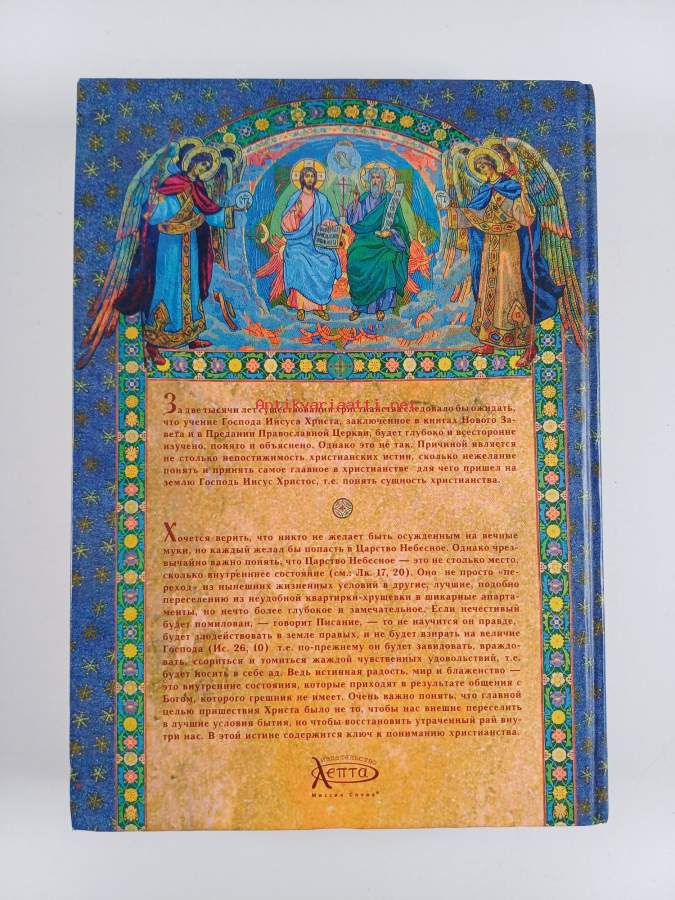 Antikvariaatti.net
За две тысячи лет существования христианства следовало бы ожидать,
что учение Господа Иисуса Христа, заключенное в книгах Нового За-
вета и в Предании Православной Церкви, будет глубоко и всесторонне
изучено, понято и объяснено. Однако это не так. Причиной является
не столько непостижимость христианских истин, сколько нежелание
понять и принять самое главное в христианстве для чего пришел на
землю Господь Иисус Христос, т.е. понять сущность христианства.
Хочется верить, что никто не желает быть осужденным на вечные
муки, но каждый желал бы попасть в Царство Небесное. Однако чрез-
вычайно важно понять, что Царство Небесное — это не столько место,
сколько внутреннее состояние (см.: Лк. 17, 20). Оно не просто «пе-
реход» из нынешних жизненных условий в другие, лучшие, подобно
переселению из неудобной квартирки-хрущевки в шикарные апарта-
менты, но нечто более глубокое и замечательное. Если нечестивый
будет помилован, — говорит Писание, — то не научится он правде,
будет злодействовать в земле правых, и не будет взирать на величие
Господа (Ис. 26, 10) т.е. по-прежнему он будет завидовать, враждо-
вать, ссориться и томиться жаждой чувственных удовольствий, т.е.
будет носить в себе ад. Ведь истинная радость, мир и блаженство —
это внутренние состояния, которые приходят в результате общения с
Богом, которого грешник не имеет. Очень важно понять, что главной
целью пришествия Христа было не то, чтобы нас внешне переселить
в лучшие условия бытия, но чтобы восстановить утраченный рай вну-
три нас. В этой истине содержится ключ к пониманию христианства.
издательство
Лепта